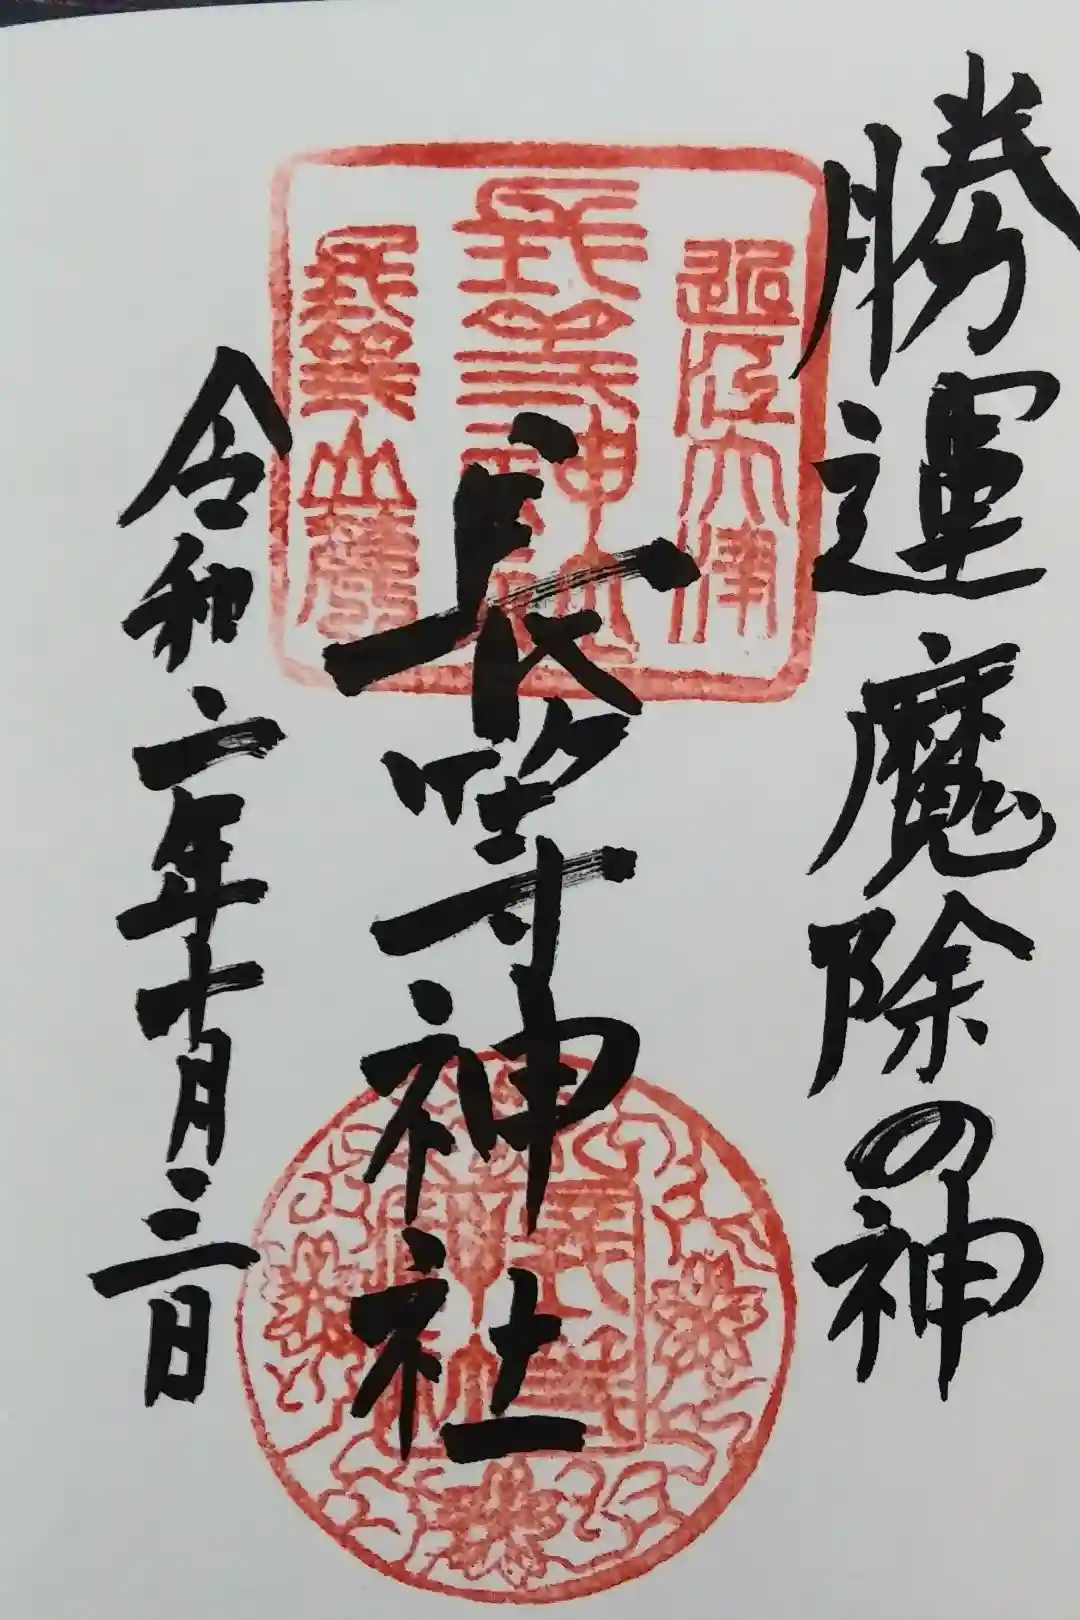 勝運魔除の神
近江大津
長等神社
長等山麓
長等神社
令和二年十月三日